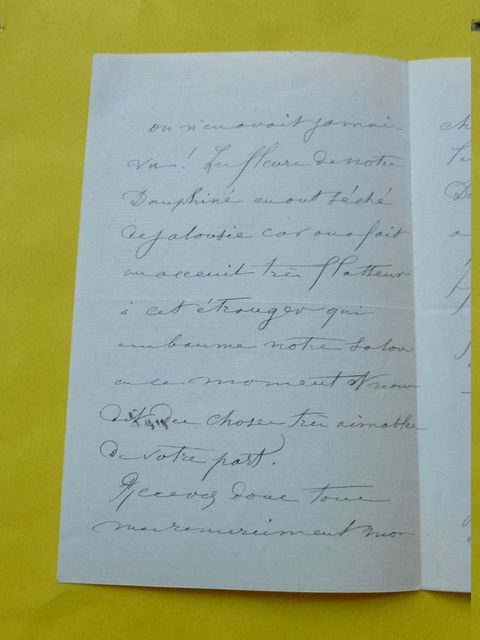 on n'en avait jamais
vu! Les fleurs de notre
Dauphiné en ont séché
de jalousie car on a fait
un accueil très flatteur
à cet étranger qui
embaume notre salon
en ce moment & nous
dit des choses très aimables
de votre part.
Recevez donc tous
mes remerciements mon
ch